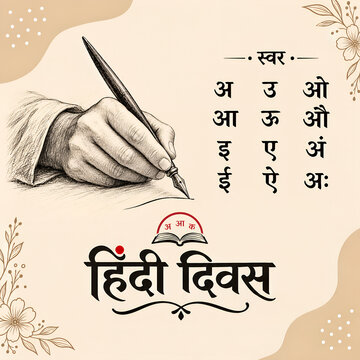 स्वर
अ उ ओ
आ ऊ औ
इ ए अं
ई ऐ अः
अ आ क
हिंदी दिवस